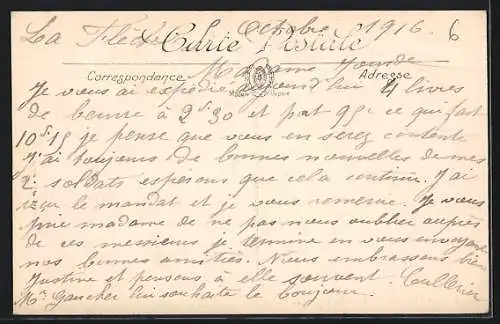 La Flèche Octobre 1916 6
Carte Postale
Correspondance Adresse
Madame
Je vous ai expédié aujourd'hui 4 livres
de beurre à 2f30 et port 95c ce qui fait
10f15 je pense que vous en serez contente
J'ai toujours de bonnes nouvelles de mes
2 soldats espérons que cela continue. J'ai
reçu le mandat et je vous remercie. Je vous
prie madame de ne pas nous oublier auprès
de ces messieurs je termine en vous envoyant
nos bonnes amitiés. Nous embrassons bien
Justine et pensons à elle souvent. Cullerier
Mr Gaucher lui souhaite le bonjour.